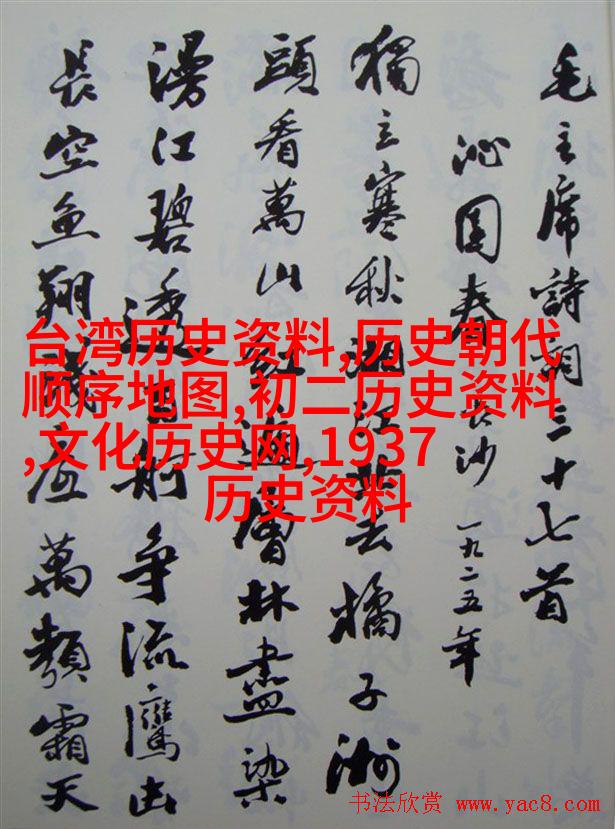 毛主席詩詞三十七首
沁园春 长沙 一九二五年
獨立寒秋湘江北去橘子洲
頭看萬山红遍層林盡染
漫江碧透百舸争流鷹击
長空鱼翔淺底萬類霜天
台湾历史资料,历史朝代
顺序地图,初二历史资料
,文化历史网,1937
历史资料
书法欣赏 www.yac8.com